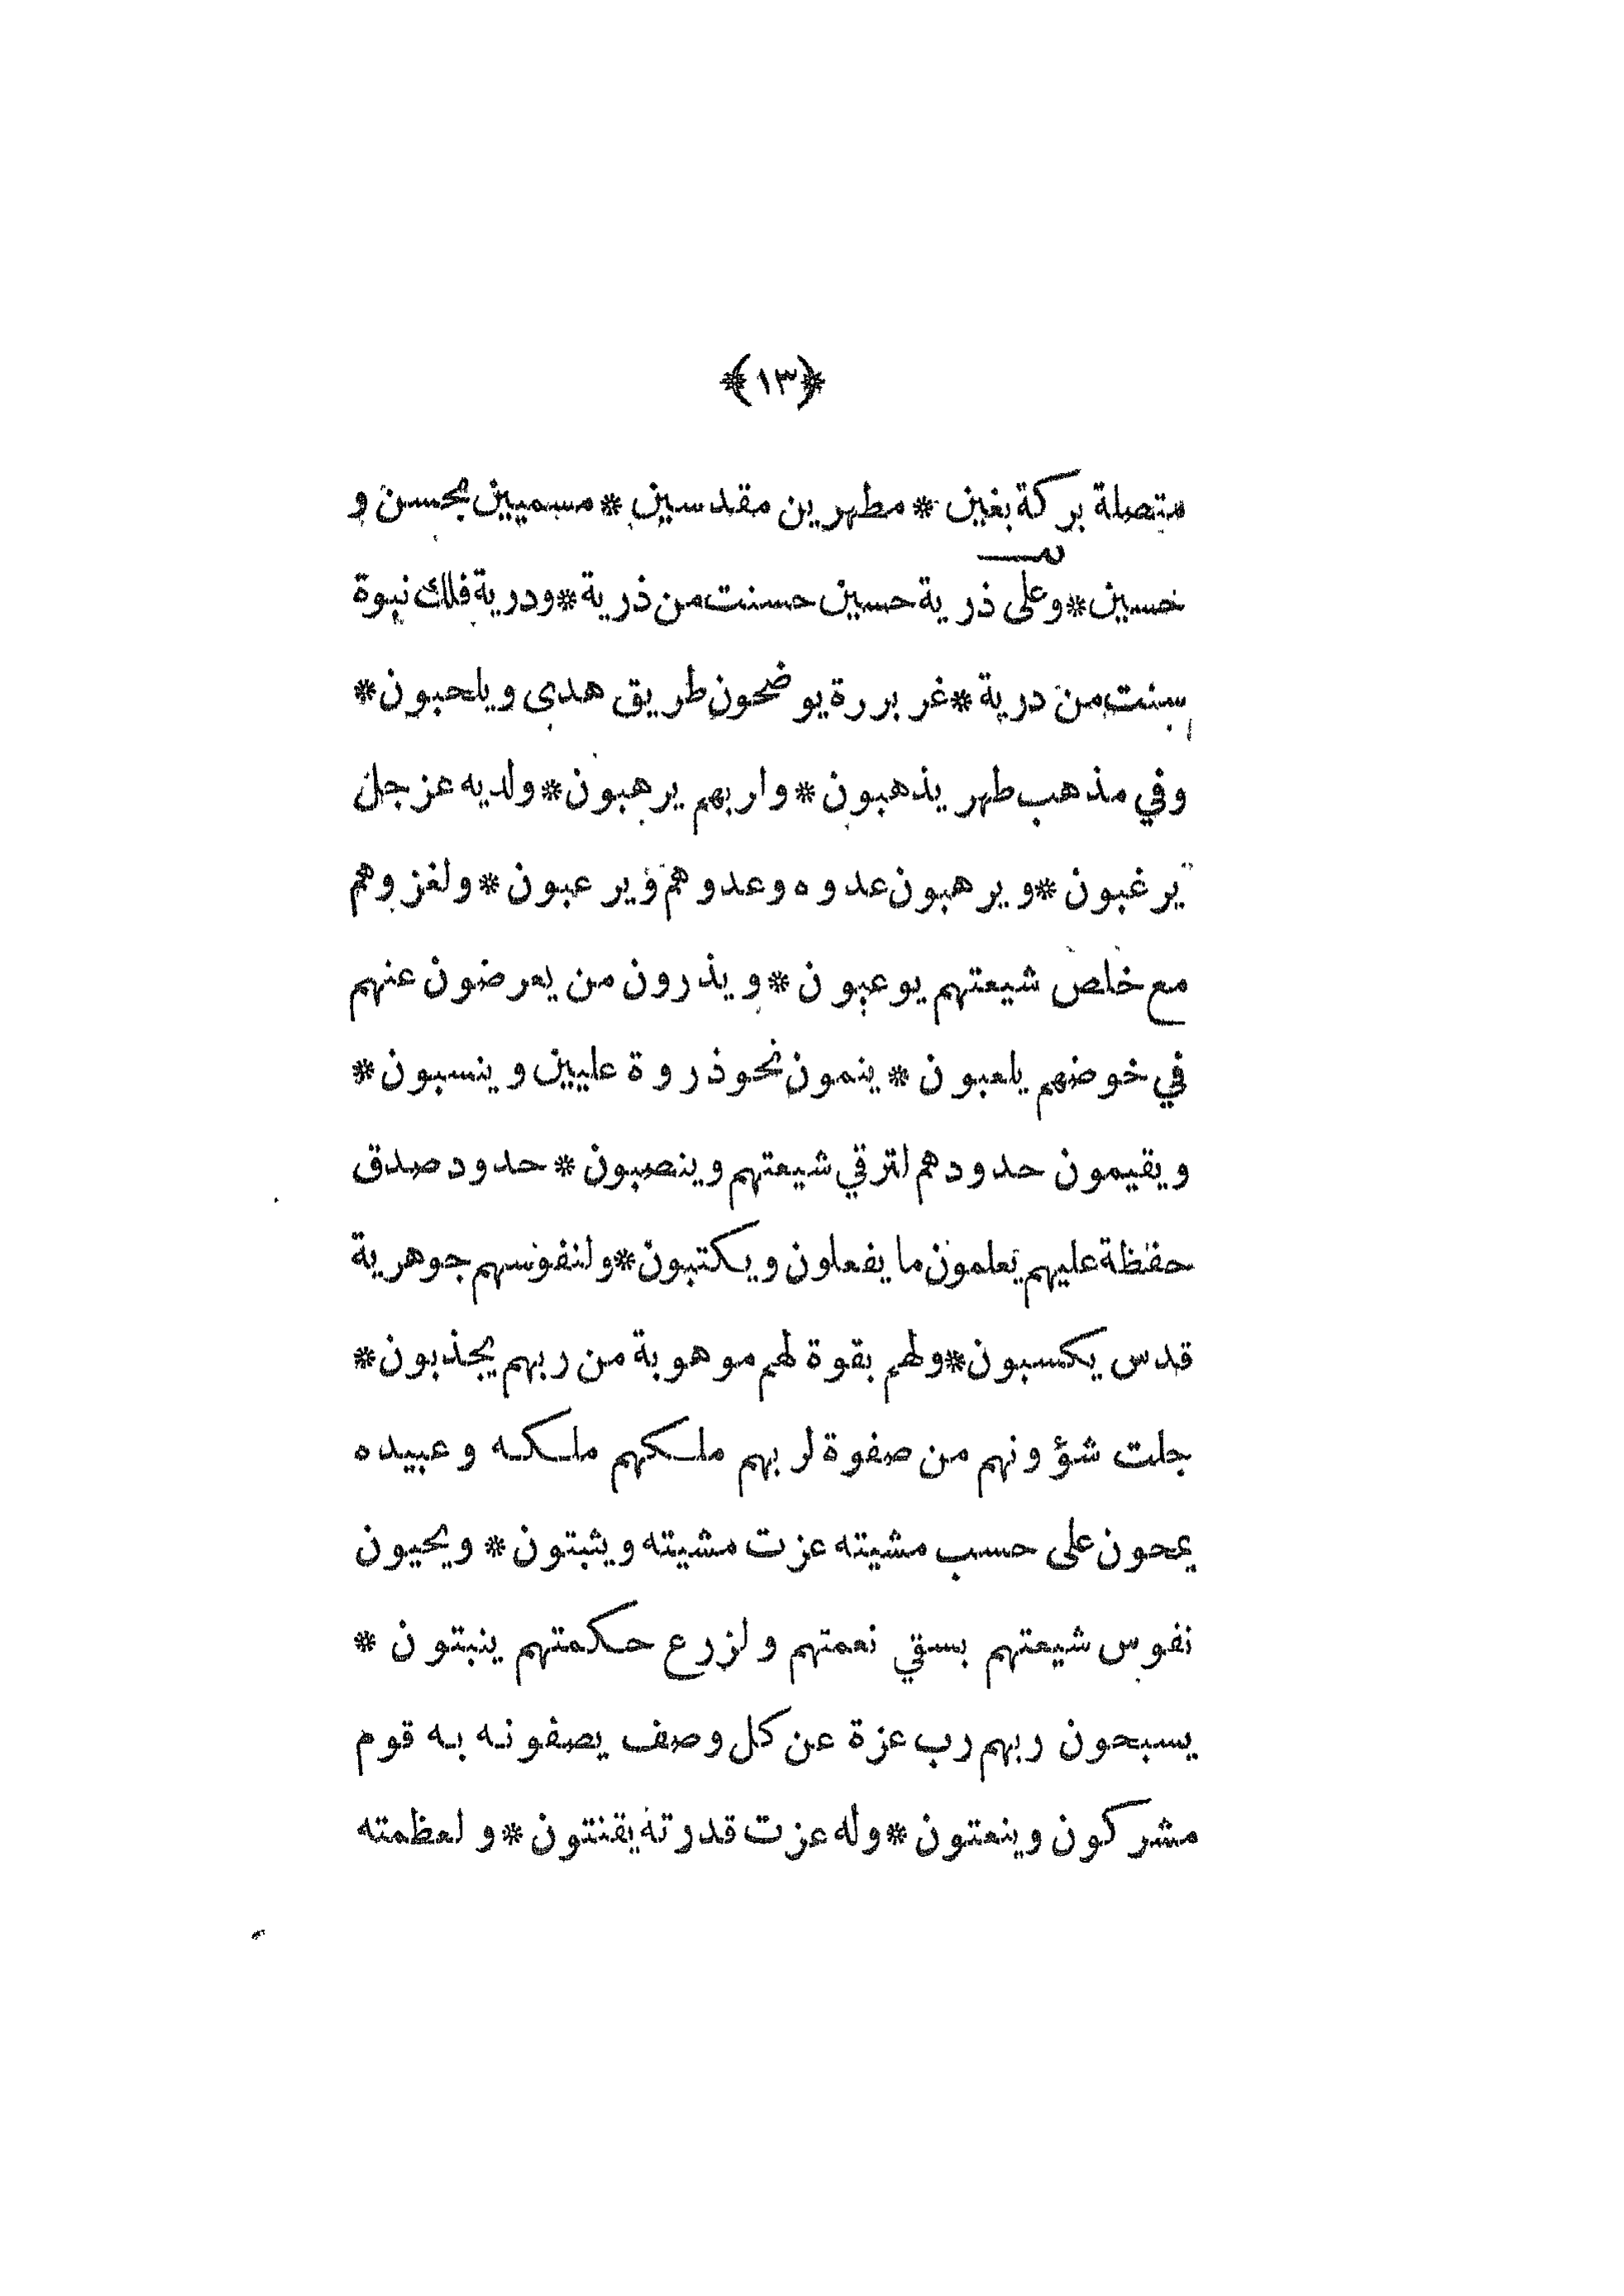 ﴿١٣﴾
متصلة بركة بغين * مطهرين مقدسين * مسميين بمحسن و
حسين * وعلى ذرية حسين حسنت من ذرية * ودرية فلك نبوة
سنت من درية * غر بررة يوضحون طريق هدى ويلحبون *
وفي مذهب طهر يذهبون * وار بهم يرهبون * ولديه عز جل
يرغبون * ويرهبون عدوه وعدوهم ويرعبون * ولغزوهم
مع خلص شيعتهم يوعبون * ويذرون من يعرضون عنهم
في خوضهم يلعبون * ينمون نحو ذروة عليين وينسبون *
ويقيمون حدودهم لترقي شيعتهم وينصبون * حدود صدق
حفظة عليهم يعلمون ما يفعلون ويكتبون * ولنفوسهم جوهرية
قدس يكسبون * ولهم بقوة لهم موهوبة من ربهم يجذبون *
جلت شؤونهم من صفوة لربهم ملكهم ملكه وعبيده
يمحون على حسب مشيته عزت مشيته ويثبتون * ويحيون
نفوس شيعتهم بسقي نعمتهم ولزرع حكمتهم ينبتون *
يسبحون ربهم رب عزة عن كل وصف يصفونه به قوم
مشركون وينعتون * وله عزت قدرته يقنتون * ولعظمته